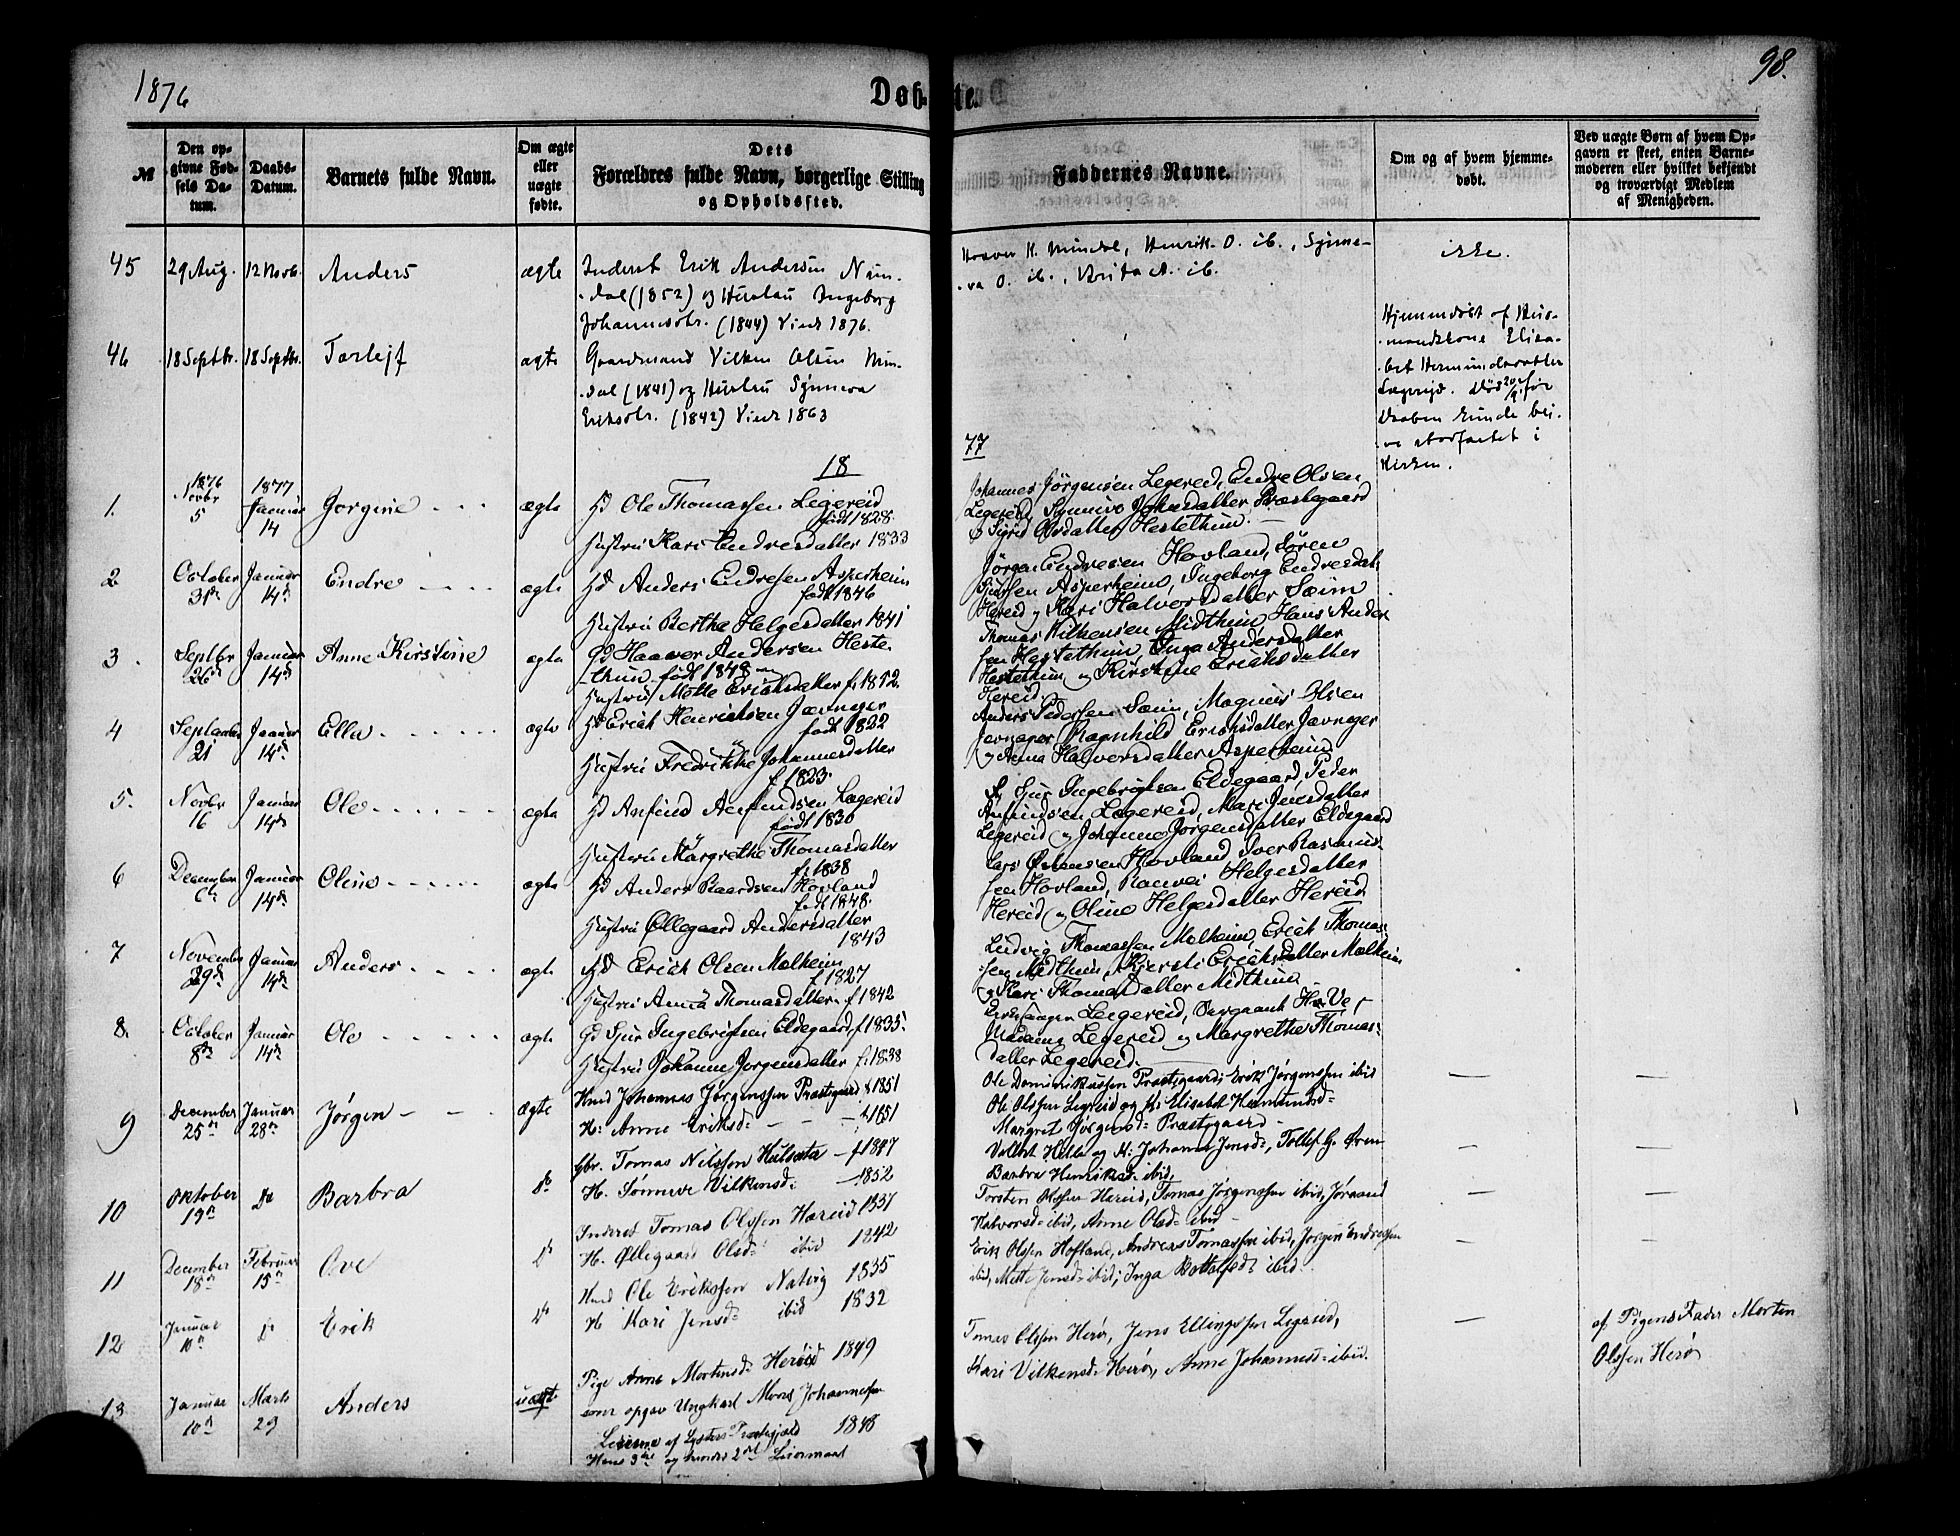 1876
Døb-
te.
98.
№
Den opgivne Fødsels Datum.
Daabs-Datum.
Barnets fulde Navn.
Om ægte eller uægte fødte.
Dets
Forældres fulde Navn, borgerlige Stilling
og Opholdssted.
Faddernes Navne.
Om og af hvem hjemme-
døbt.
Ved uægte Børn af hvem Op-
gaven er skeet, enten Barne-
moderen eller hvilket bekjendt
og troværdigt Medlem
af Menigheden.
45 29 Aug. 12 Novb. Anders ægte Inderst Erik Andersen Mun-
dal (1852) og Hustru Ingeborg
Johannesdtr. (1844) Viede 1876.
Haaver H. Mundal, Henrik O. ib., Synne-
va O. ib., Brita A. ib.
ikke.
46 18 Septbr. 18 Septbr. Torleif ægte Gaardmand Vilken Olsen Mun-
dal (1841) og Hustru Synneva
Eriksdtr. (1842) Viede 1863
Hjemmedøbt af Hus-
mandskone Elisa-
bet Hermundsdatter
Lægreid. Død 20/9 før
Daaben kunde bli-
ve stadfæstet i
Kirken.
18
77
1. 1876 Novbr 5 1877 Januar 14 Jorgine ægte Gd Ole Thomassen Legereid
født 1828
Hustru Kari Endresdatter 1833
Johannes Jörgensen Legereid, Endre Olsen
Legereid, Synnive Johnsdatter Præstegaard
& Sigrid Olsdatter Hestethun.
2 October 31te Januar 14de Endre ægte Gd Anders Endresen Asperheim
født 1846
Hustru Berthe Helgesdatter 1841
Jørgen Endresen Hovland, Sören
Sjursen Asperheim, Ingeborg Endresdat.
Hereid og Kari Halvorsdatter Sæim
3. Septbr 26de Januar 14de Anne Kirstine ægte Gd Haaver Andersen Heste-
thun født 1848
Hustru Mette Erichsdatter f. 1852
Thomas Vilhemsen Midthun, Hans Ander-
sen Hestethun, Inga Andersdatter
Hestethun og Kirstine Erichsdatter
Hereid
4 September 21 Januar 14de Ella ægte Gd Erich Henrichsen Jævnager
født 1822
Hustru Fredrikke Johannesdatter
f. 1823.
Anders Pedersen Sæim, Magnus Olsen
Jævnager, Ragnhild Erichsdatter Jævnager
og Anna Halvorsdatter Asperheim
5. Novbr 16 Januar 14de Ole ægte Gd Anfind Anfindsen Lægereid
født 1830
Hustru Margrethe Thomasdatter
f. 1838
Sjur Ingebrigtsen Eldegaard, Peder
Anfindsen Lægereid, Mari Jensdatter
Legereid og Johanne Jörgensdatter Eldegaard
6 December 6te Januar 14de Oline ægte Gd Anders Baardsen Hovland
født 1848.
Hustru Øllegaard Andersdatter
1843
Lars Hovland, Iver Rasmus-
sen Hovland, Ranvei Helgesdatter
Hereid og Oline Helgesdatter Hereid
7 November 29de Januar 14de Anders ægte Gd Erich Olsen Molheim
f 1827
Hustru Anna Thomasdatter f 1842
Ludvig Thomassen Molheim, Erich Thomas-
sen Midthun, Kjersti Erichsdatter Molheim
og Kari Thomasdatter Midthun
8. October 8de Januar 14de Ole ægte Gd Sjur Ingebrigtsen Eldegaard, f. 1835.
Hustru Johanne Jorgensdatter f. 1838
Legereid, Sergeant
Madame Legereid og Margrethe Thomas-
datter Legereid.
9 December 25de Januar 28de Jørgen ægte Hmd Johannes Jørgenssen Prestegaard f 1851
H: Anne Eriksd: f. 1851
Ole Dominikussen Præstegaard, Erik Jørgenssen ibid
Ole Olssen Legreid og H: Elisabet Hermundsd:
Margret Jørgensd: Præstegaard
10 Oktober 19de Do Barbra Do Gbr. Tomas Nilssen Hulsæte f 1847
H. Sønneve Vilkensd: 1852
Hilla og H: Johanne Jensd:, Tollef G. Øren
Barbra Henriksd: ibid.
11 December 18de Februar 15de Ove Do Inderst Tomas Olssen Hereid 1837
H. Øllegaard Olsd: ibid 1842
Torsten Olssen Hereid, Tomas Jørgenssen ibid, Jøraand
Halvorsd: ibid, Anne Olsd: ibid
12 Januar 10de Do Erik Do Hmd Ole Erikssen Natvig 1835
H Kari Jensd: ibid 1832
Erik Olssen Hofland, Andreas Tomassen ibid, Jørgen Endresen
ibid, Mette Jensd: ibid, Inga Bottolfsd: ibid.
13 Januar 10de Marts 29 Anders uægte Pige Anne Mortensd: Herøid 1849
som opgav Ungkarl Mons Johannessen
Leirmo af Lysters Præstegjæld 1848
Hans 3die og hendes 2det Leiermaal
Tomas Olssen Herø, Jens Ellingssen Legreid,
Kari Vilkensd: Herø, Anne Johannesd: ibid.
af Pigens Fader Morten
Olssen Herø